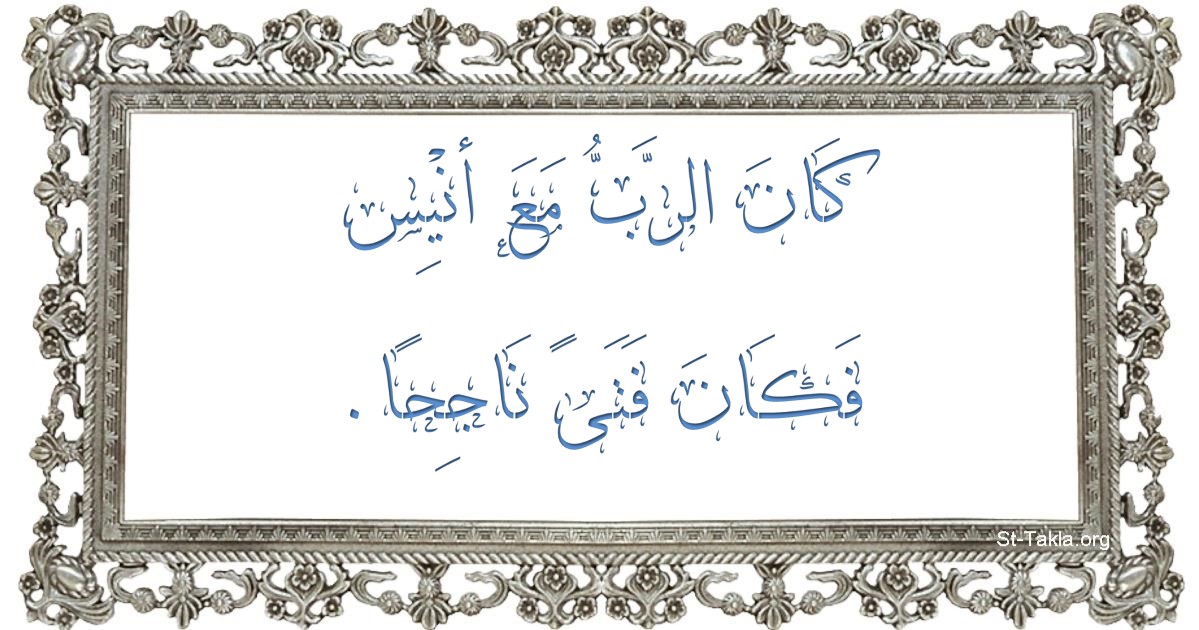 كَانَ الرَّبُّ مَعَ أنْيِس
فَكَانَ فَتَىً نَاجِحًا .
St-Takla.org